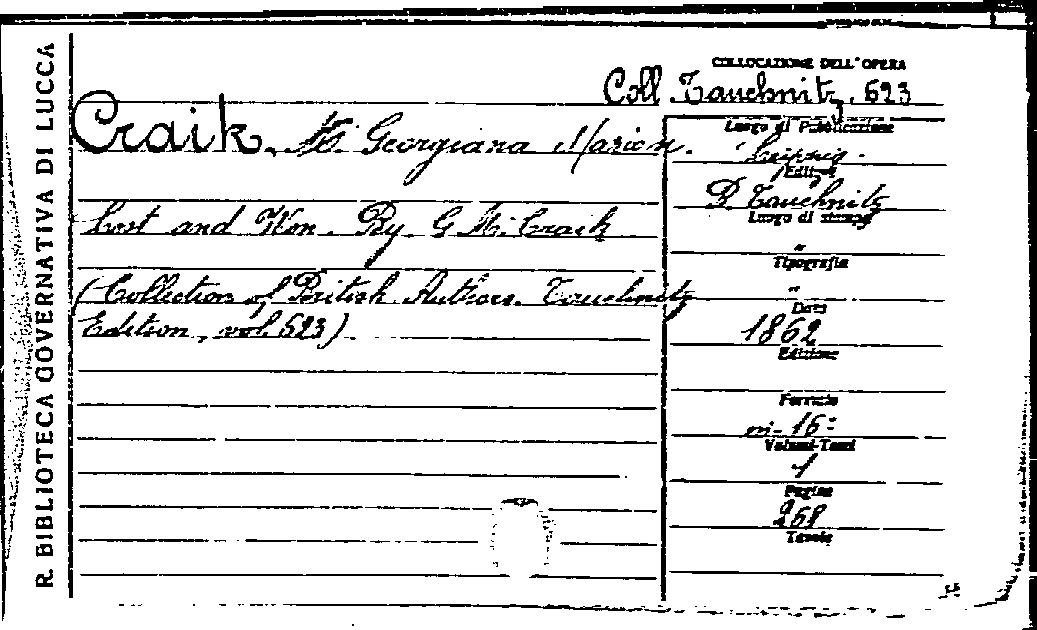 R. BIBLIOTECA GOVERNATIVA DI LUCCA
COLLOCAZIONE DELL'OPERA
Coll. Tauchnitz. 523
Craik, Georgiana Marion.
Lost and Won. By G. M. Craik
(Collection of British Authors. Tauchnitz
Edition, vol. 523).
Luogo di Pubblicazione
Leipzig.
Editore
B. Tauchnitz
Luogo di stampa
"
Tipografia
"
Data
1862
Edizione
Formato
in-16°
Volumi-Tomi
1
Pagine
268
Tavole